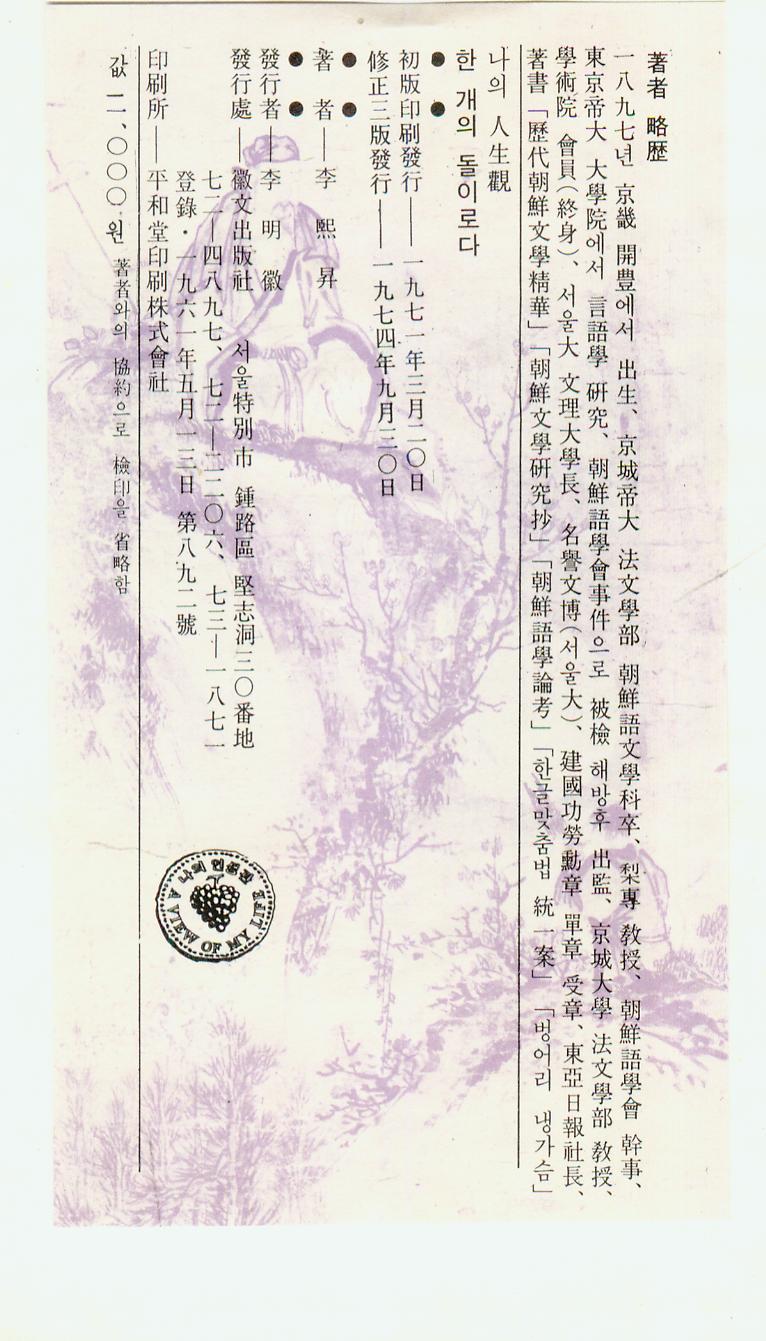 著者 略歴
一八九七년 京畿 開豊에서 出生、京城帝大 法文學部 朝鮮語文學科卒、梨專 敎授、朝鮮語學會 幹事、
東京帝大 大學院에서 言語學 硏究、朝鮮語學會事件으로 被檢 해방후 出監、京城大學 法文學部 敎授、
學術院 會員(終身)、서울大 文理大學長、名譽文博(서울大)、建國功勞勳章 單章 受章、東亞日報社長、
著書「歷代朝鮮文學精華」「朝鮮文學硏究抄」「朝鮮語學論考」「한글맞춤법 統一案」「벙어리 냉가슴」
나의 人生觀
한 개의 돌이로다
初版印刷發行——一九七一年三月二〇日
修正三版發行——一九七四年九月三〇日
著 者—李 熙 昇
發行者—李 明 徽
發行處—徽文出版社 서울特別市 鍾路區 堅志洞三〇番地
七二—四八九七、七二—二二〇六、七三—一八七一
登錄·一九六一年五月一三日 第八九二號
印刷所——平和堂印刷株式會社
값 二、〇〇〇 원 著者와의 協約으로 檢印을 省略함
나의 인생관
A VIEW OF MY LIFE